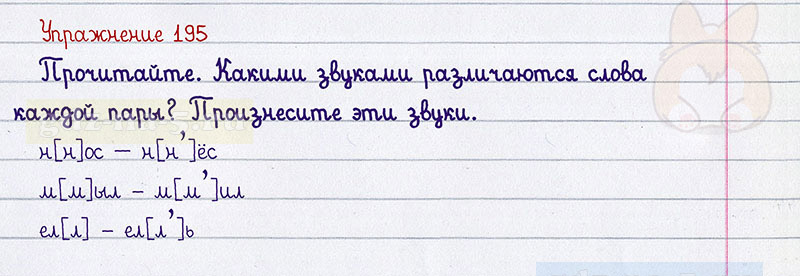 Упражнение 195
Прочитайте. Какими звуками различаются слова
каждой пары? Произнесите эти звуки.
н[н]ос – н[н’]ёс
м[м]ыл – м[м’]ил
ел[л] – ел[л’]ь